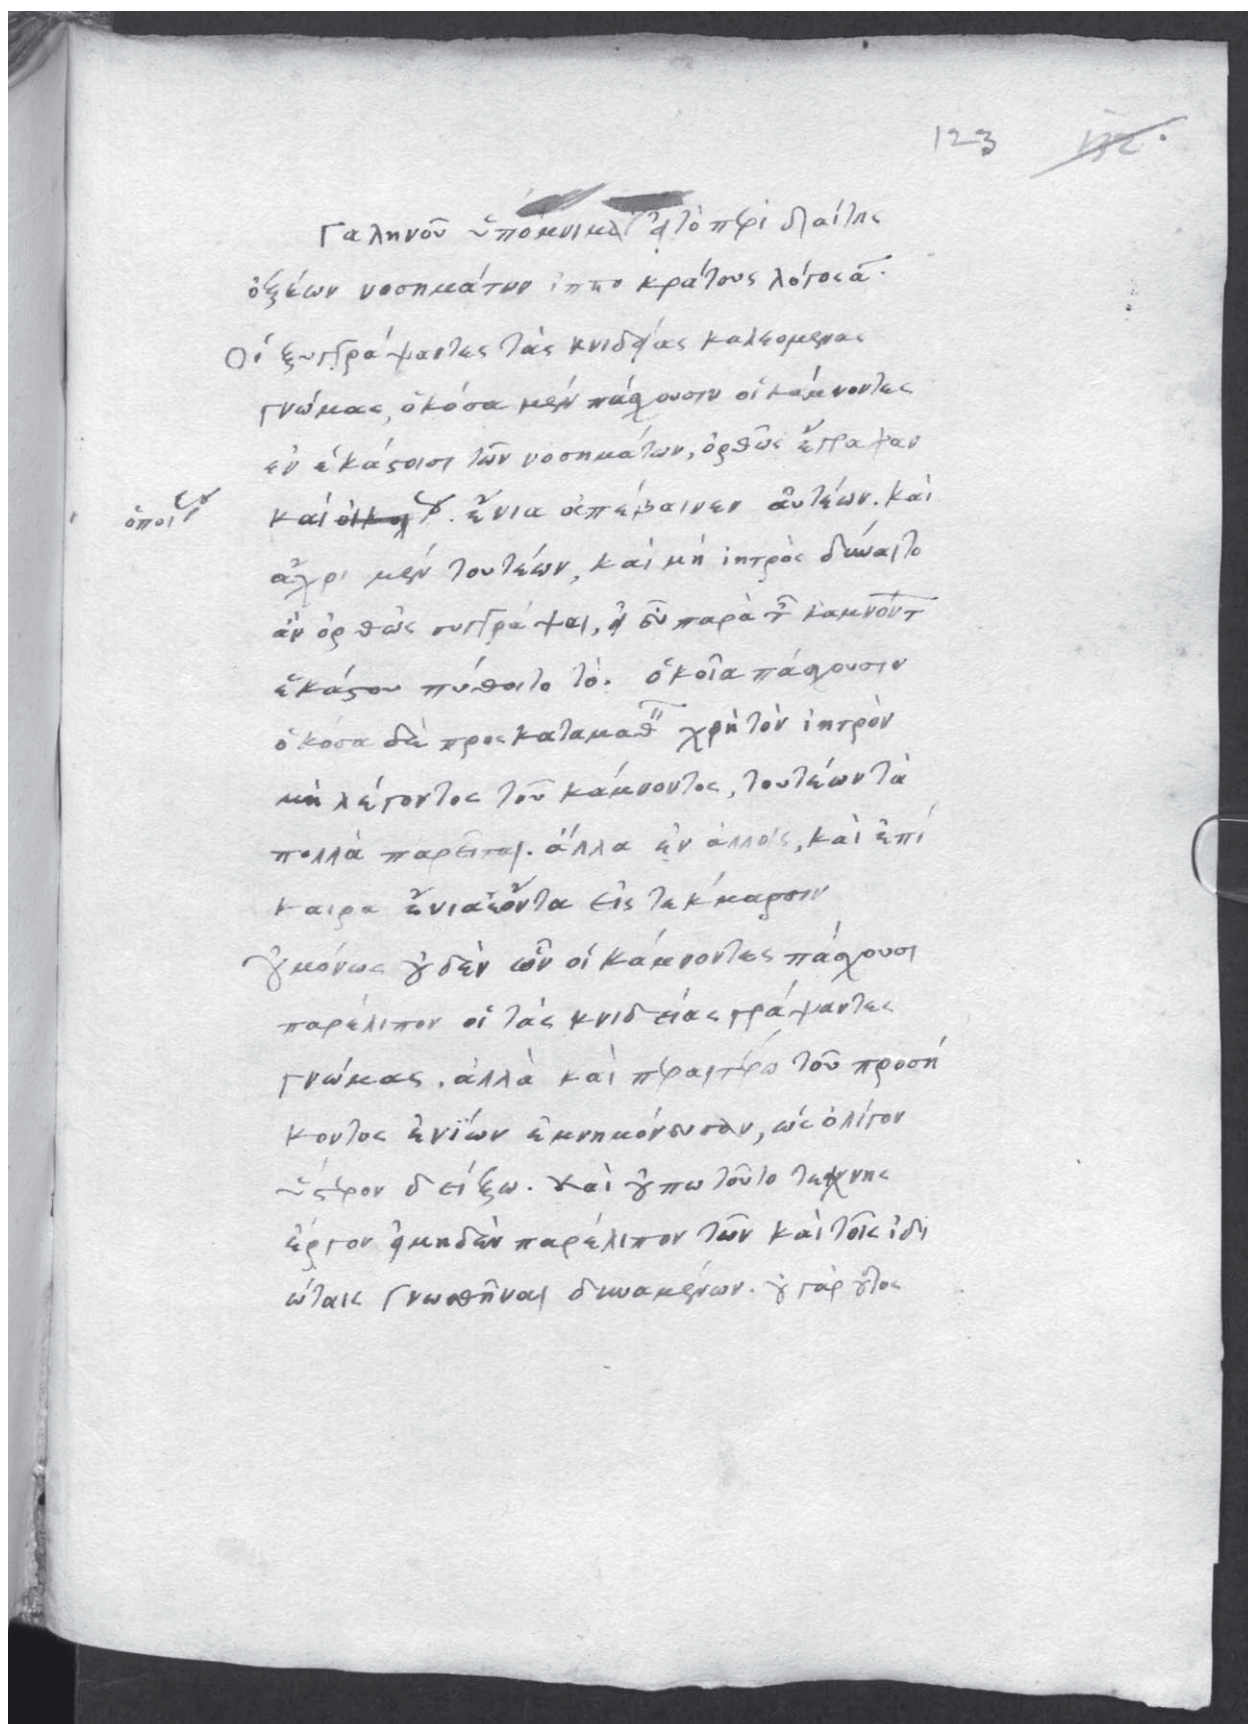 123
Γαληνοῦ ὑπόμνημα εἰς τὸ περὶ διαίτης
ὀξέων νοσημάτων ἱπποκράτους λόγος α̅.
Οἱ ξυγγράψαντες τὰς κνιδείας καλεομένας
γνώμας, ὁκόσα μὲν πάσχουσιν οἱ κάμνοντες
ἐν ἑκάστοισι τῶν νοσημάτων, ὀρθῶς ἔγραψαν
ὁποί
καὶ ἔνια ἀπέβαινεν αὐτέων. καὶ
ἄχρι μὲν τουτέων, καὶ μὴ ἰητρὸς δύναιτο
ἂν ὀρθῶς συγγράψαι, εἰ εὖ παρὰ τῶν καμνόντ
ἑκάστου πύθοιτο τὸ. ὁκοῖα πάσχουσιν
ὁκόσα δὲ προσκαταμαθεῖν χρὴ τὸν ἰητρὸν
μὴ λέγοντος τοῦ κάμνοντος, τουτέων τὰ
πολλὰ παρεῖται. ἄλλα ἐν ἄλλοις, καὶ ἐπί
καιρα ἔνια ἐόντα εἰς τεκμαρσιν
οὐ μόνως οὐδὲν ὧν οἱ κάμνοντες πάσχουσι
παρέλιπον οἱ τὰς κνιδείας γράψαντες
γνώμας. ἀλλὰ καὶ περαιτέρω τοῦ προσή
κοντος ἐνίων ἐμνημόνευσαν, ὡς ὀλίγον
ὕστερον δείξω. καὶ οὔπω τοῦτο τέχνης
ἔργον εἰ μηδὲν παρέλιπον τῶν καὶ τοῖς ἰδι
ώταις γνωσθῆναι δυναμένων. οὐ γὰρ οὗτος